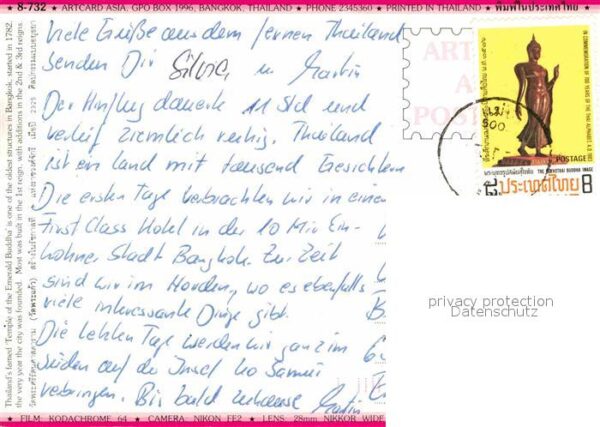 ★ 8-732 ★ ARTCARD ASIA, GPO BOX 1996, BANGKOK, THAILAND ★ PHONE 2345360 ★ PRINTED IN THAILAND ★ พิมพ์ในประเทศไทย ★
Thailand's famed 'Temple of the Emerald Buddha' is one of the oldest structures in Bangkok, started in 1782,
the very year the city was founded. Most was built in the 1st reign, with additions in the 2nd & 3rd reigns.
Viele Grüße aus dem fernen Thailand
senden Dir Silvia u Martin
Der Hinflug dauerte 11 Std und
verlief ziemlich ruhig. Thailand
ist ein Land mit tausend Gesichtern
Die ersten Tage verbrachten wir in einem
First Class Hotel in der 10 Mio Ein-
wohner Stadt Bangkok. Zur Zeit
sind wir im Norden, wo es ebenfalls
viele interessante Dinge gibt.
Die letzten Tage werden wir ganz im
Süden auf der Insel Ko Samui
verbringen. Bis bald zuhause Martin
ART
A
POST
500
POSTAGE
THE SUKHOTHAI BUDDHA IMAGE
ประเทศไทย 8
privacy protection
Datenschutz
★ FILM: KODACHROME 64 ★ CAMERA: NIKON FE2 ★ LENS: 28mm NIKKOR WIDE